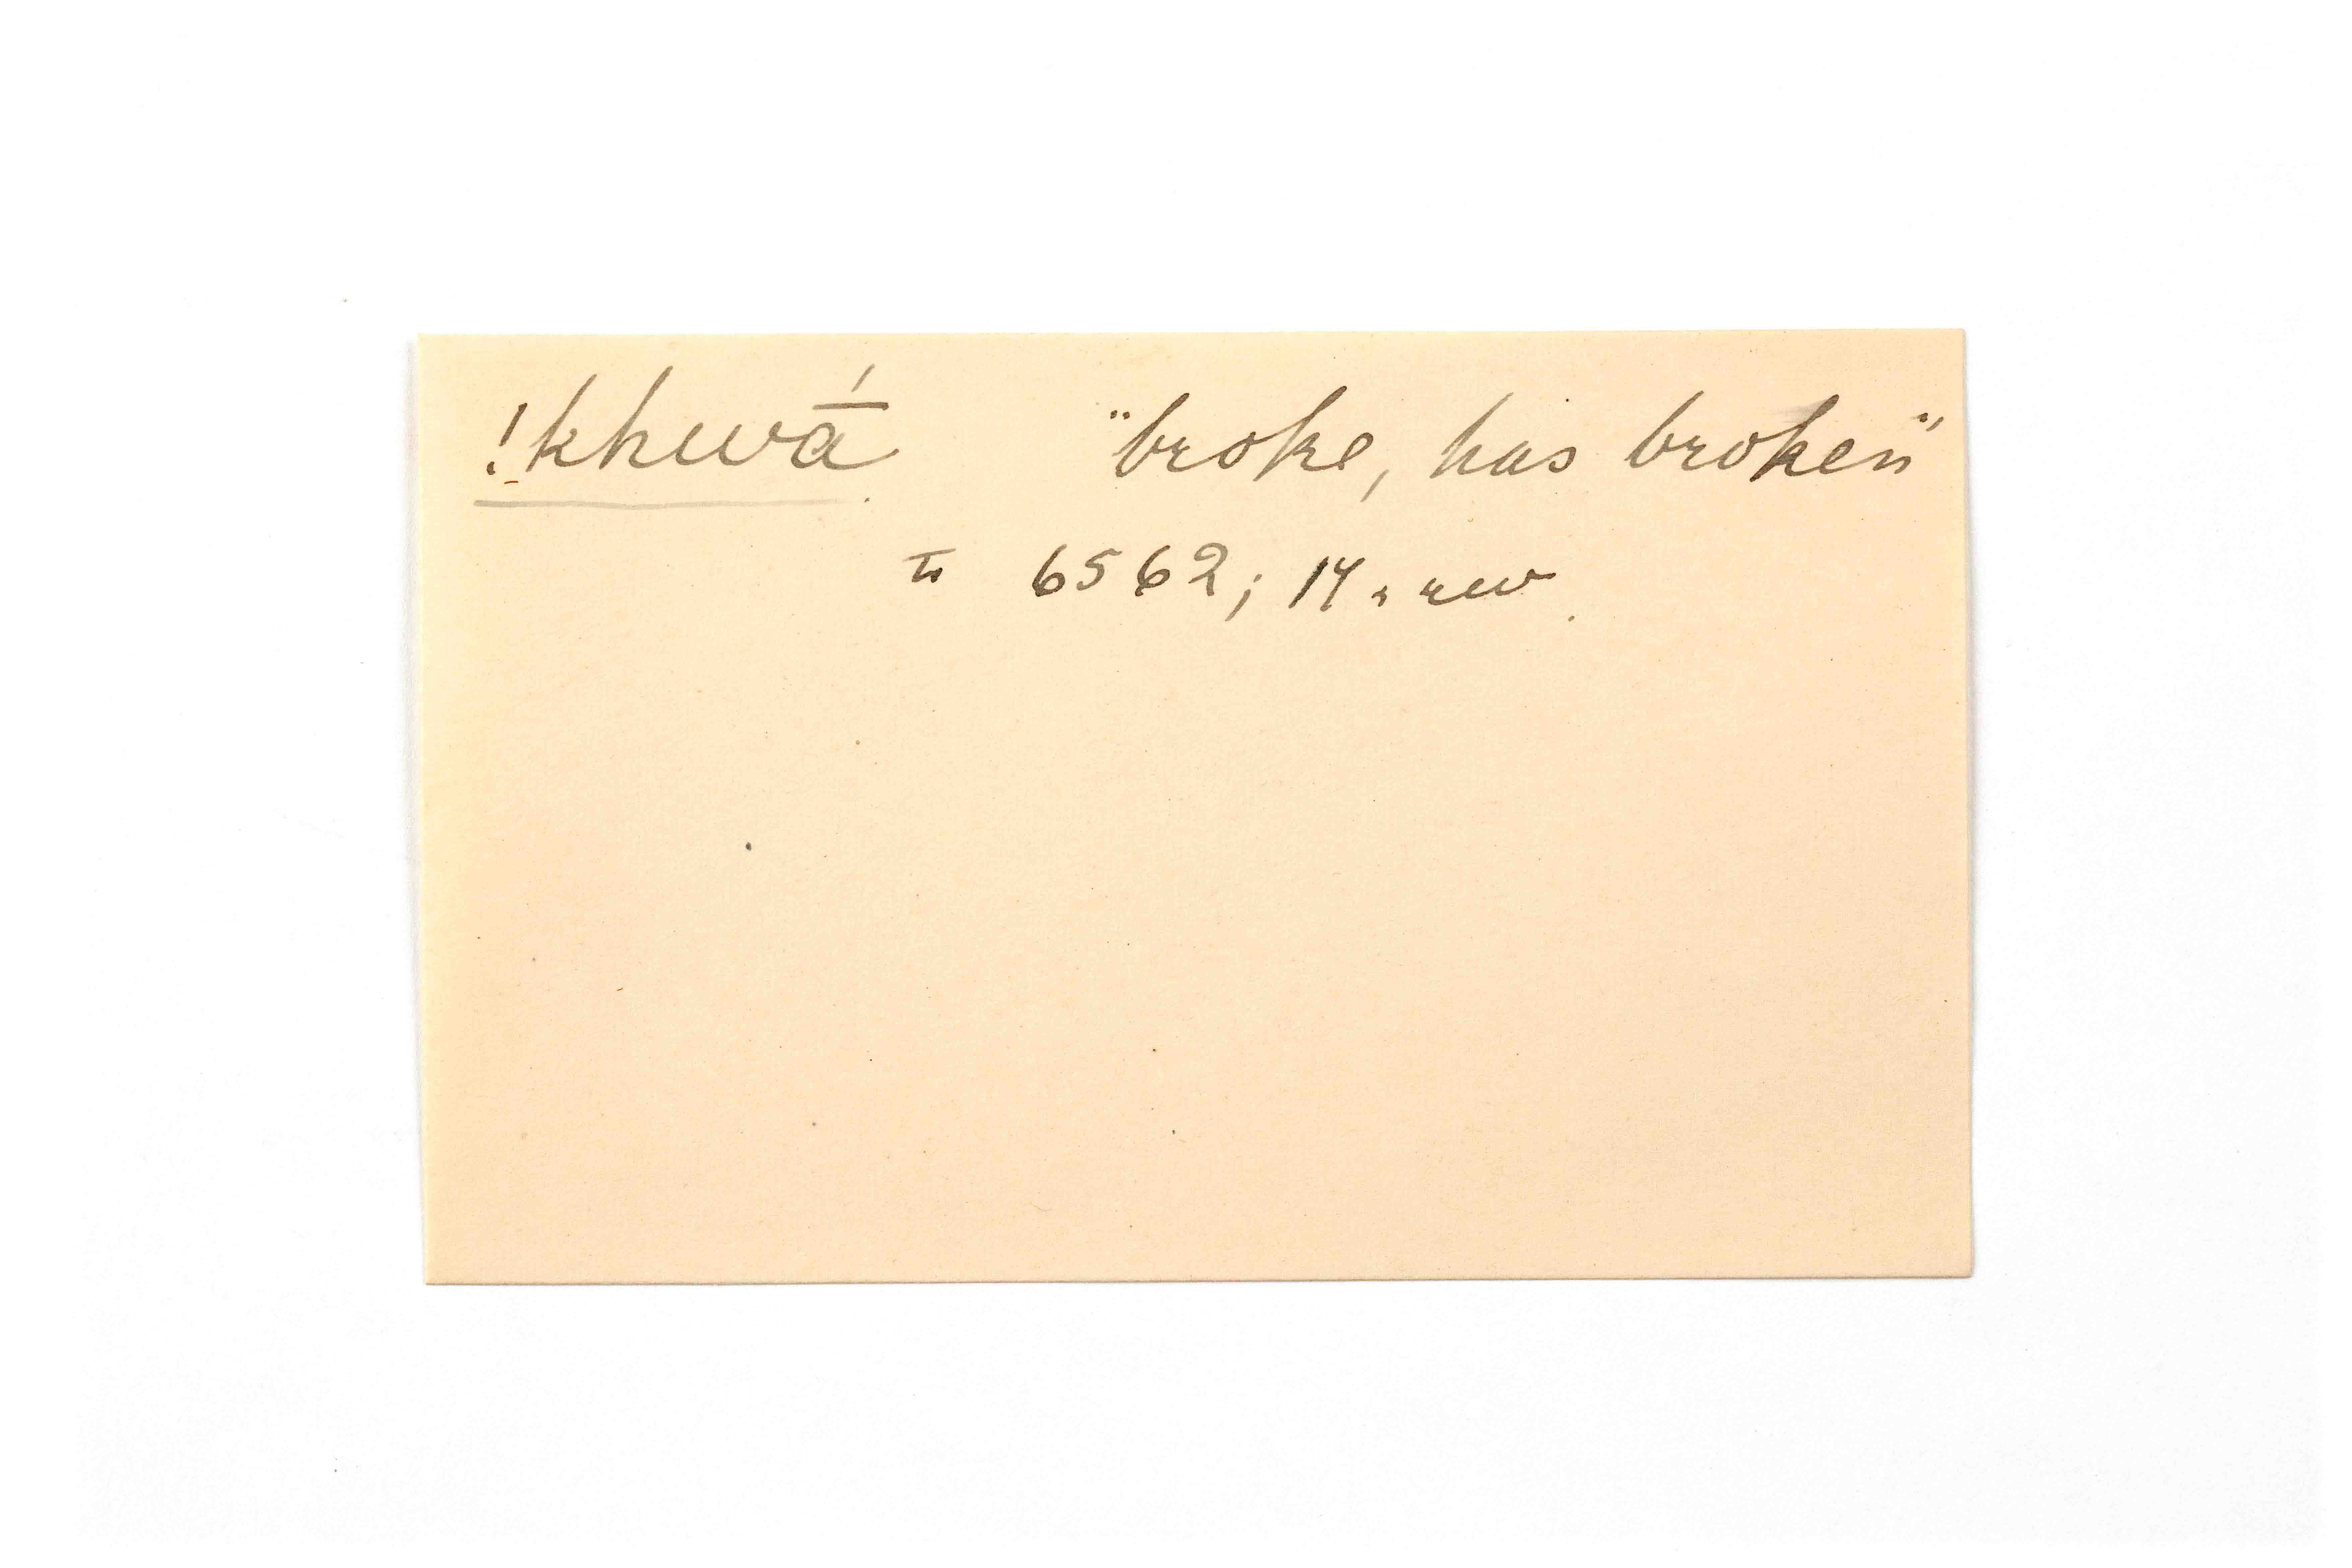 !khwā́ "broke, has broken"
6562; 14. rev.